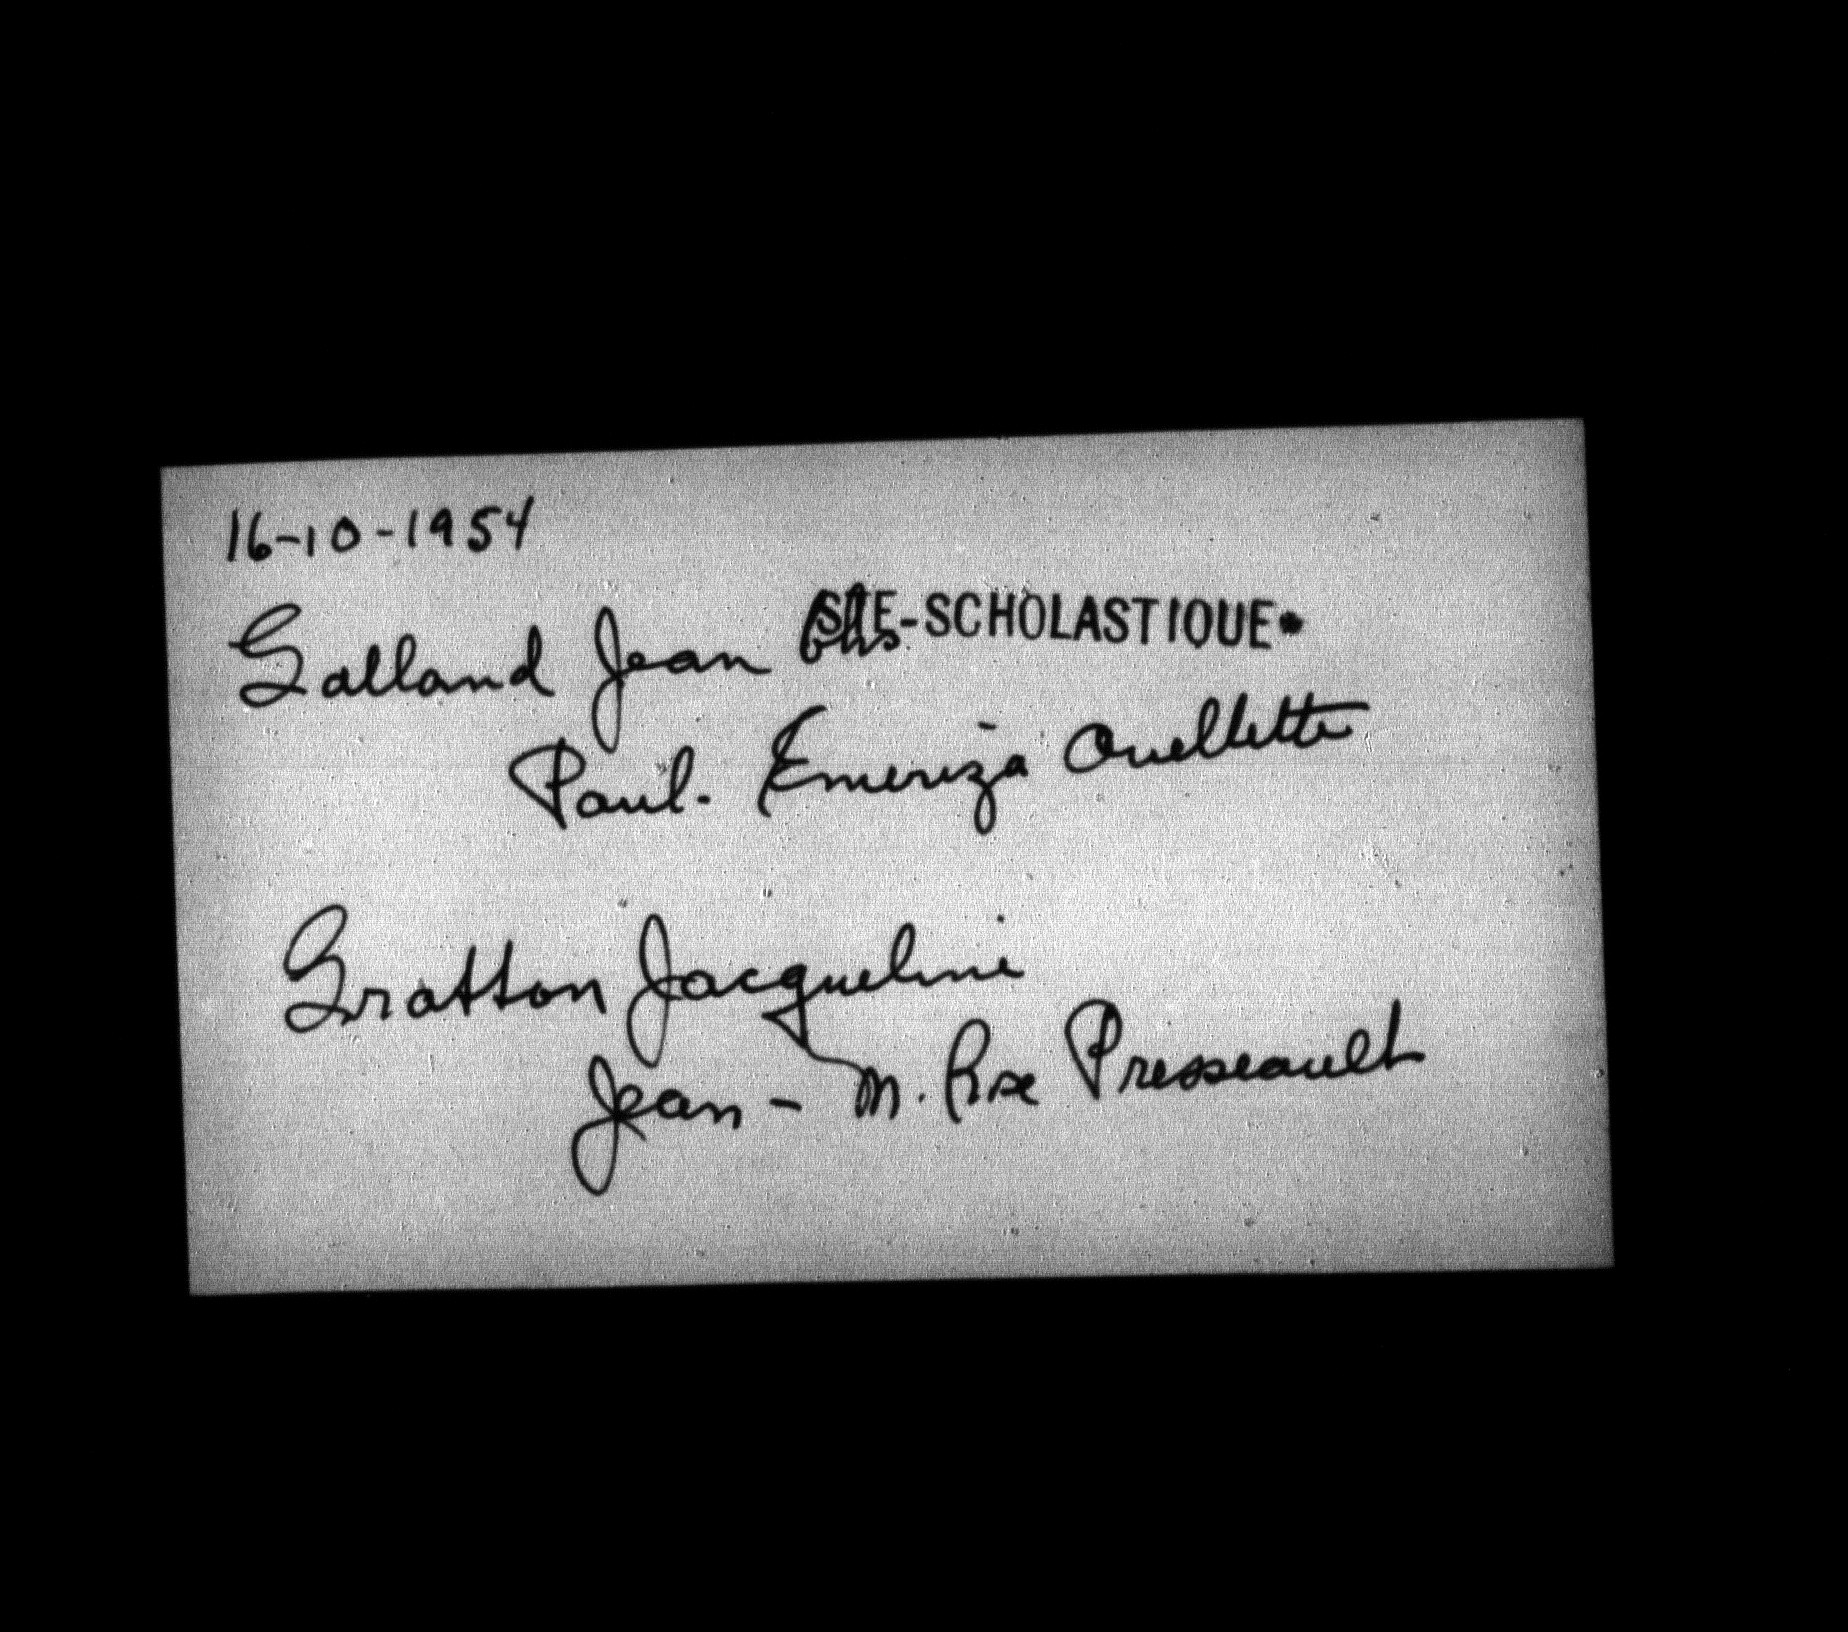 16-10-1954
Galland Jean Chs STE-SCHOLASTIQUE
Paul. Emeriza Ouellette
Gratton Jacqueline
Jean - M. Rose Presseault